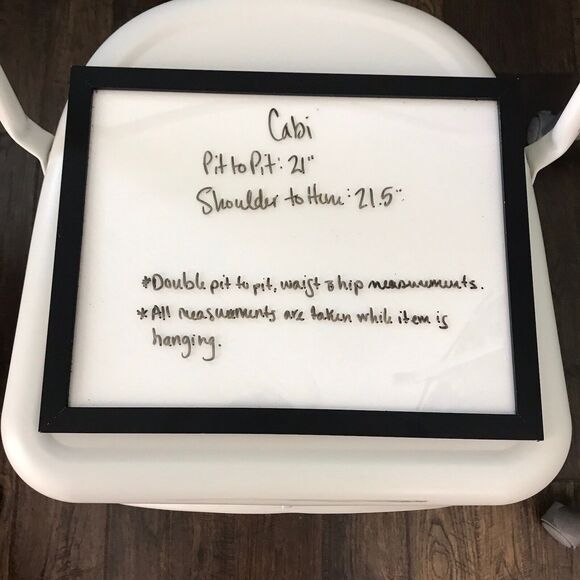 Cabi
Pit to Pit: 21"
Shoulder to Hem: 21.5"
*Double pit to pit, waist & hip measurements.
*All measurements are taken while item is
hanging.